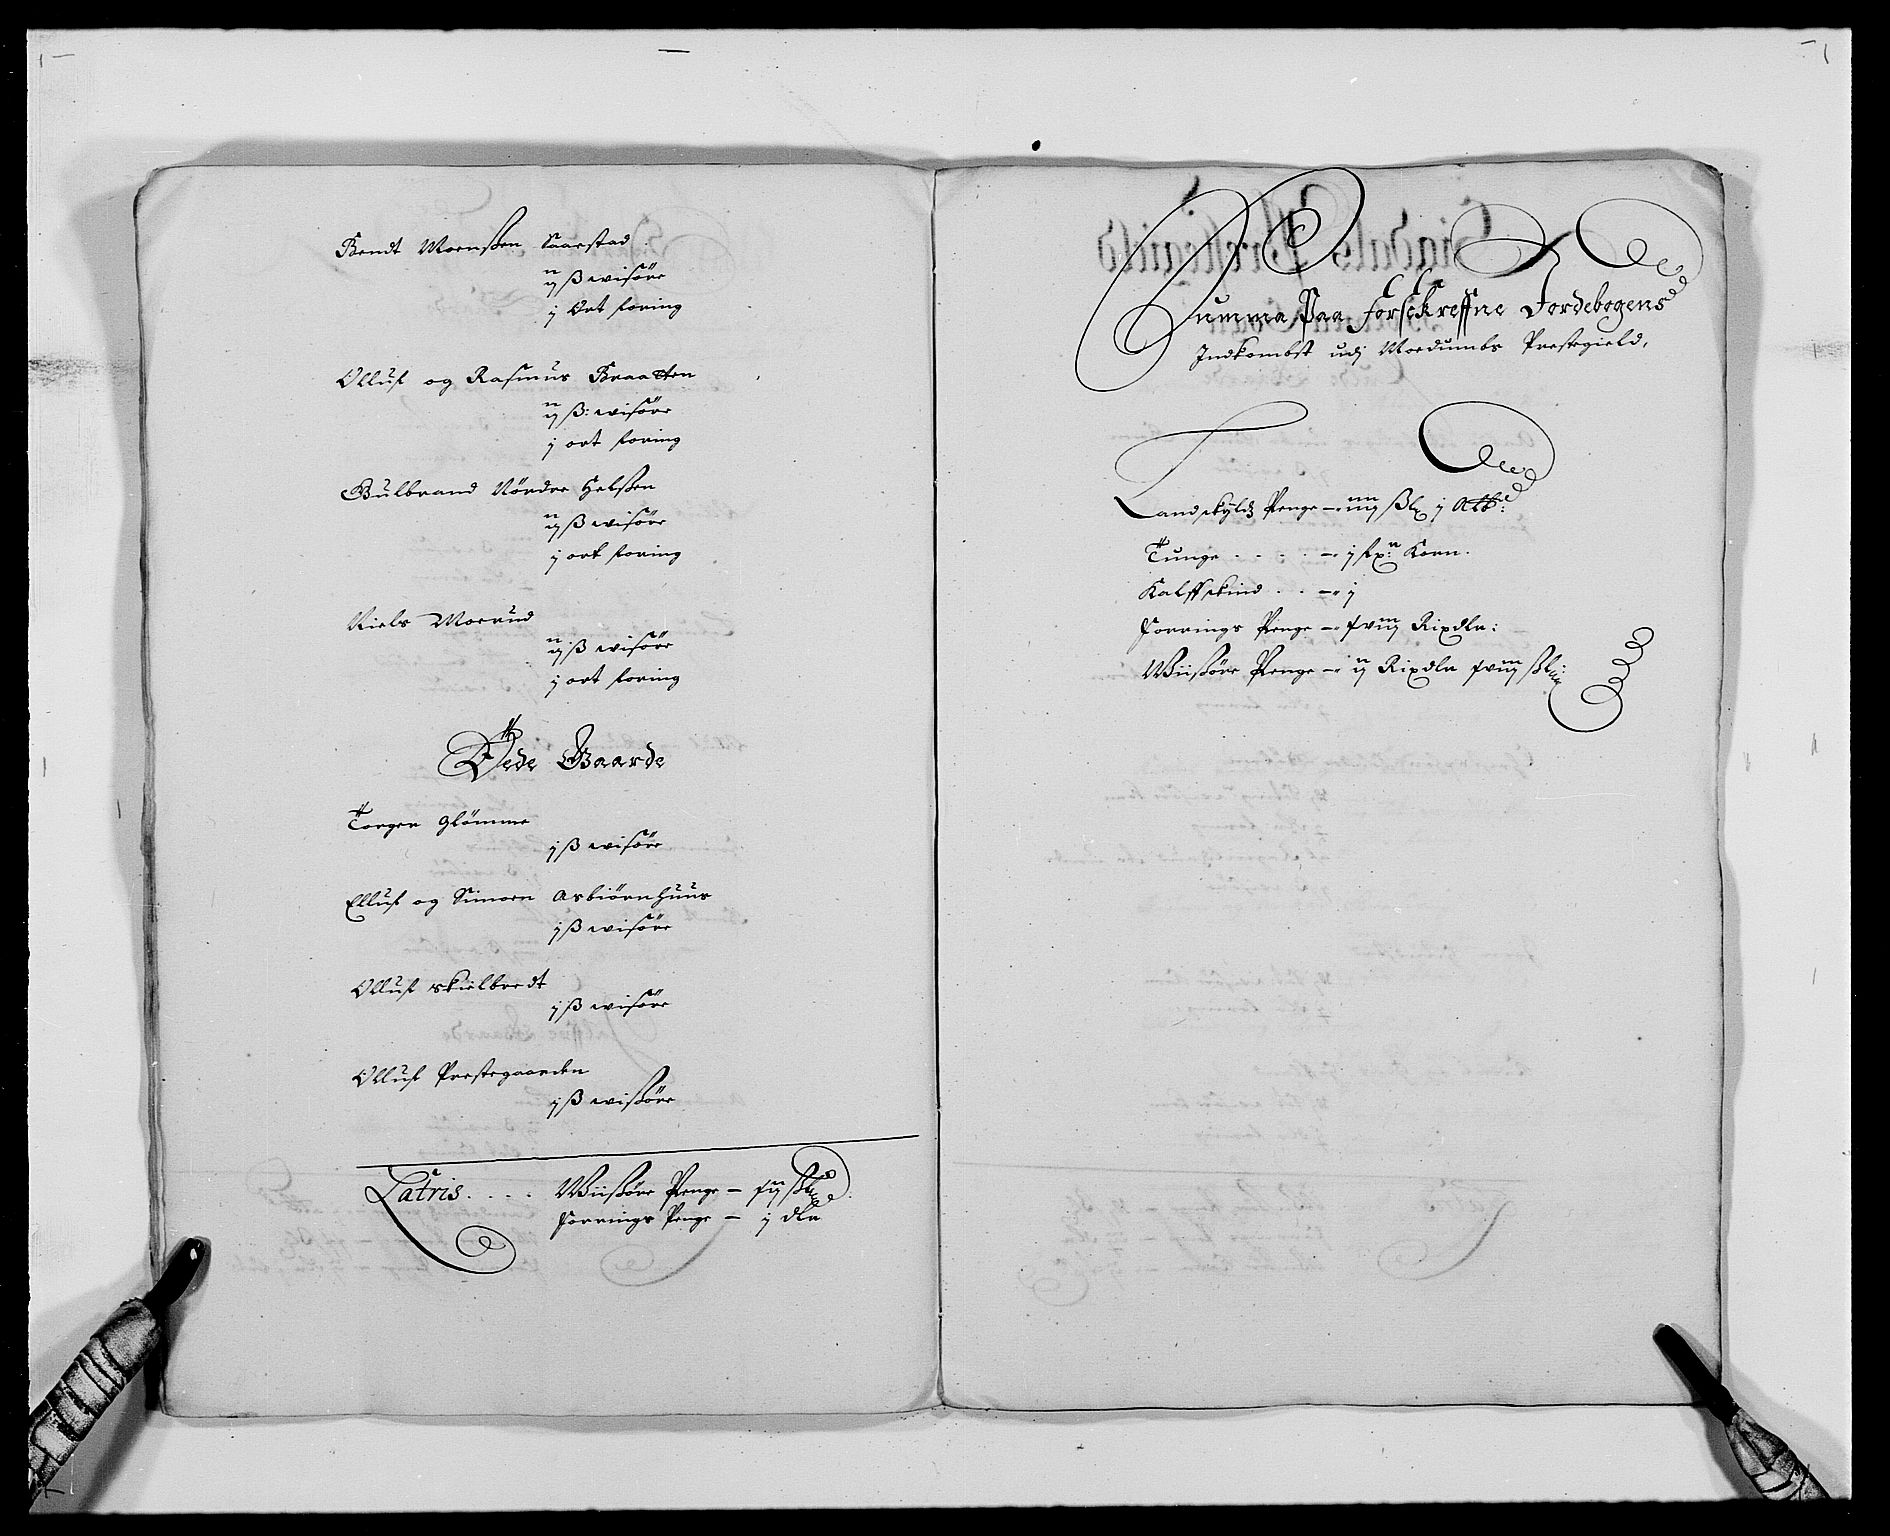 Bendt Moenßen Saarstad
ij ß wisöre
j Ort foring
Olluf og Rasmus Braatten
ij ß: wisöre
j ort foring
Gulbrand Nördre Helßen
ij ß wisöre
j ort foring
Niels Moerud
ij ß wisöre
j ort foring
Øde Gaarde
Torger Glömme
j ß wisöre
Elluf og Simoen Asbiörnhuus
j ß wisöre
Olluf skielbredt
j ß wisöre
Olluf Prestegaarden
j ß wißöre
Latris . . . . Wiißöre Penge –
Forrings Penge – j dlr
Summa Paa forschreffne Jordebogens
Indkombst udj Moedumbs Prestegield,
Landskyldz Penge – iiij ßl j
Tunge . . . . – j Korn.
Kalffskind . . – j
Forrings Penge – xviij Rixdlr:
Wiißöre Penge – ij Rixdlr xviij ßl: